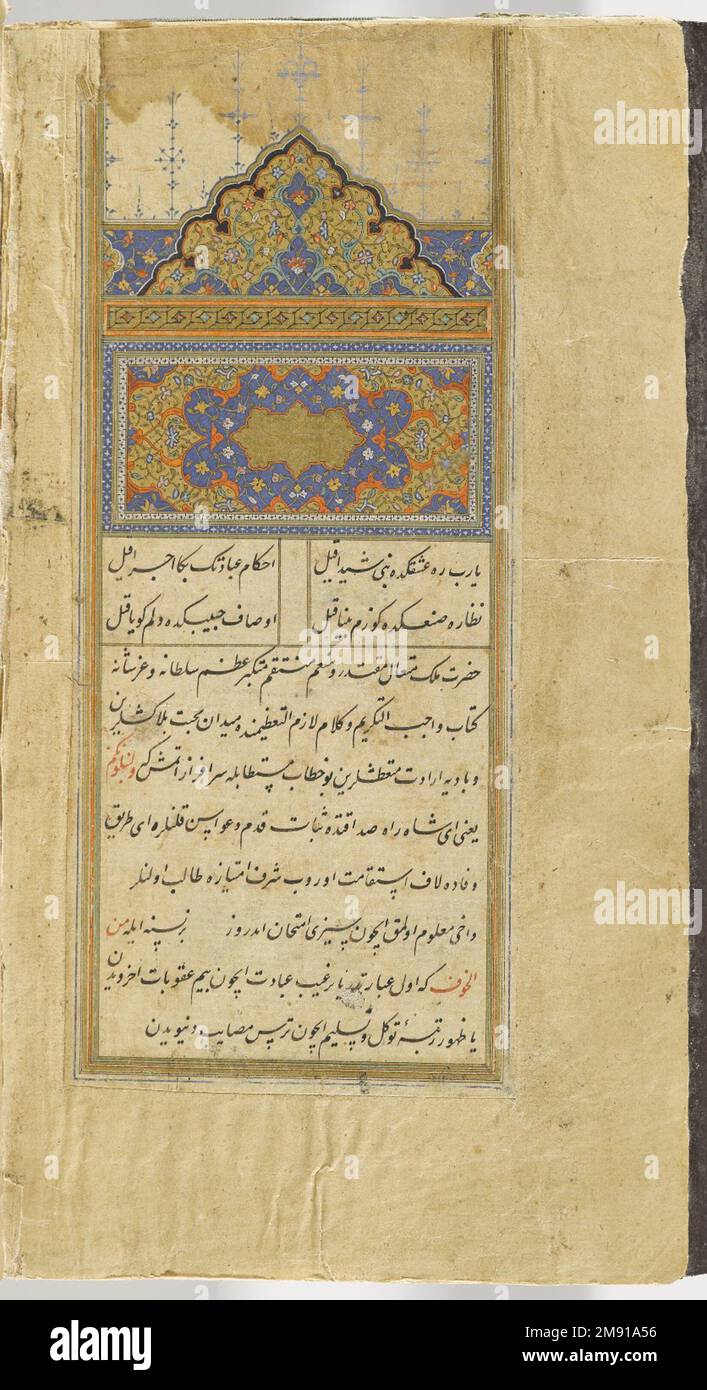 یارب ره عشقکده بنی شیدا قیل
احکام عبادتک بکا اجرا قیل
نظاره صنعکده کوزم بینا قیل
اوصاف حبیبکده دلم کویا قیل
حضرت ملک متعال مقتدر و منعم منتقم متکبر عظم سلطانه و عز شانه
کتاب واجب التکریم و کلام لازم التعظیمنده میدان محبت بلاکشلرین
و بادیه ارادت متعطشلرین بو خطاب مستطابله سرافراز اتمش که ولنبلونکم
یعنی ای شاه راه صداقتده ثبات قدم دعواسن قلنلر و ای طریق
وفاده لاف استقامت اوروب شرف امتیازه طالب اولنلر
داخی معلوم اولمق ایچون سیزی امتحان ایدروز برنسنه ایله من
الخوف که اول عبارتدر یا ترغیب عبادت ایچون بیم عقوبات اخرویدن
یا ظهور رتبهٔ توکل و تسلیم ایچون ترس مصایب دنیویدن
alamy
alamy
Image ID: 2M91A56
www.alamy.com